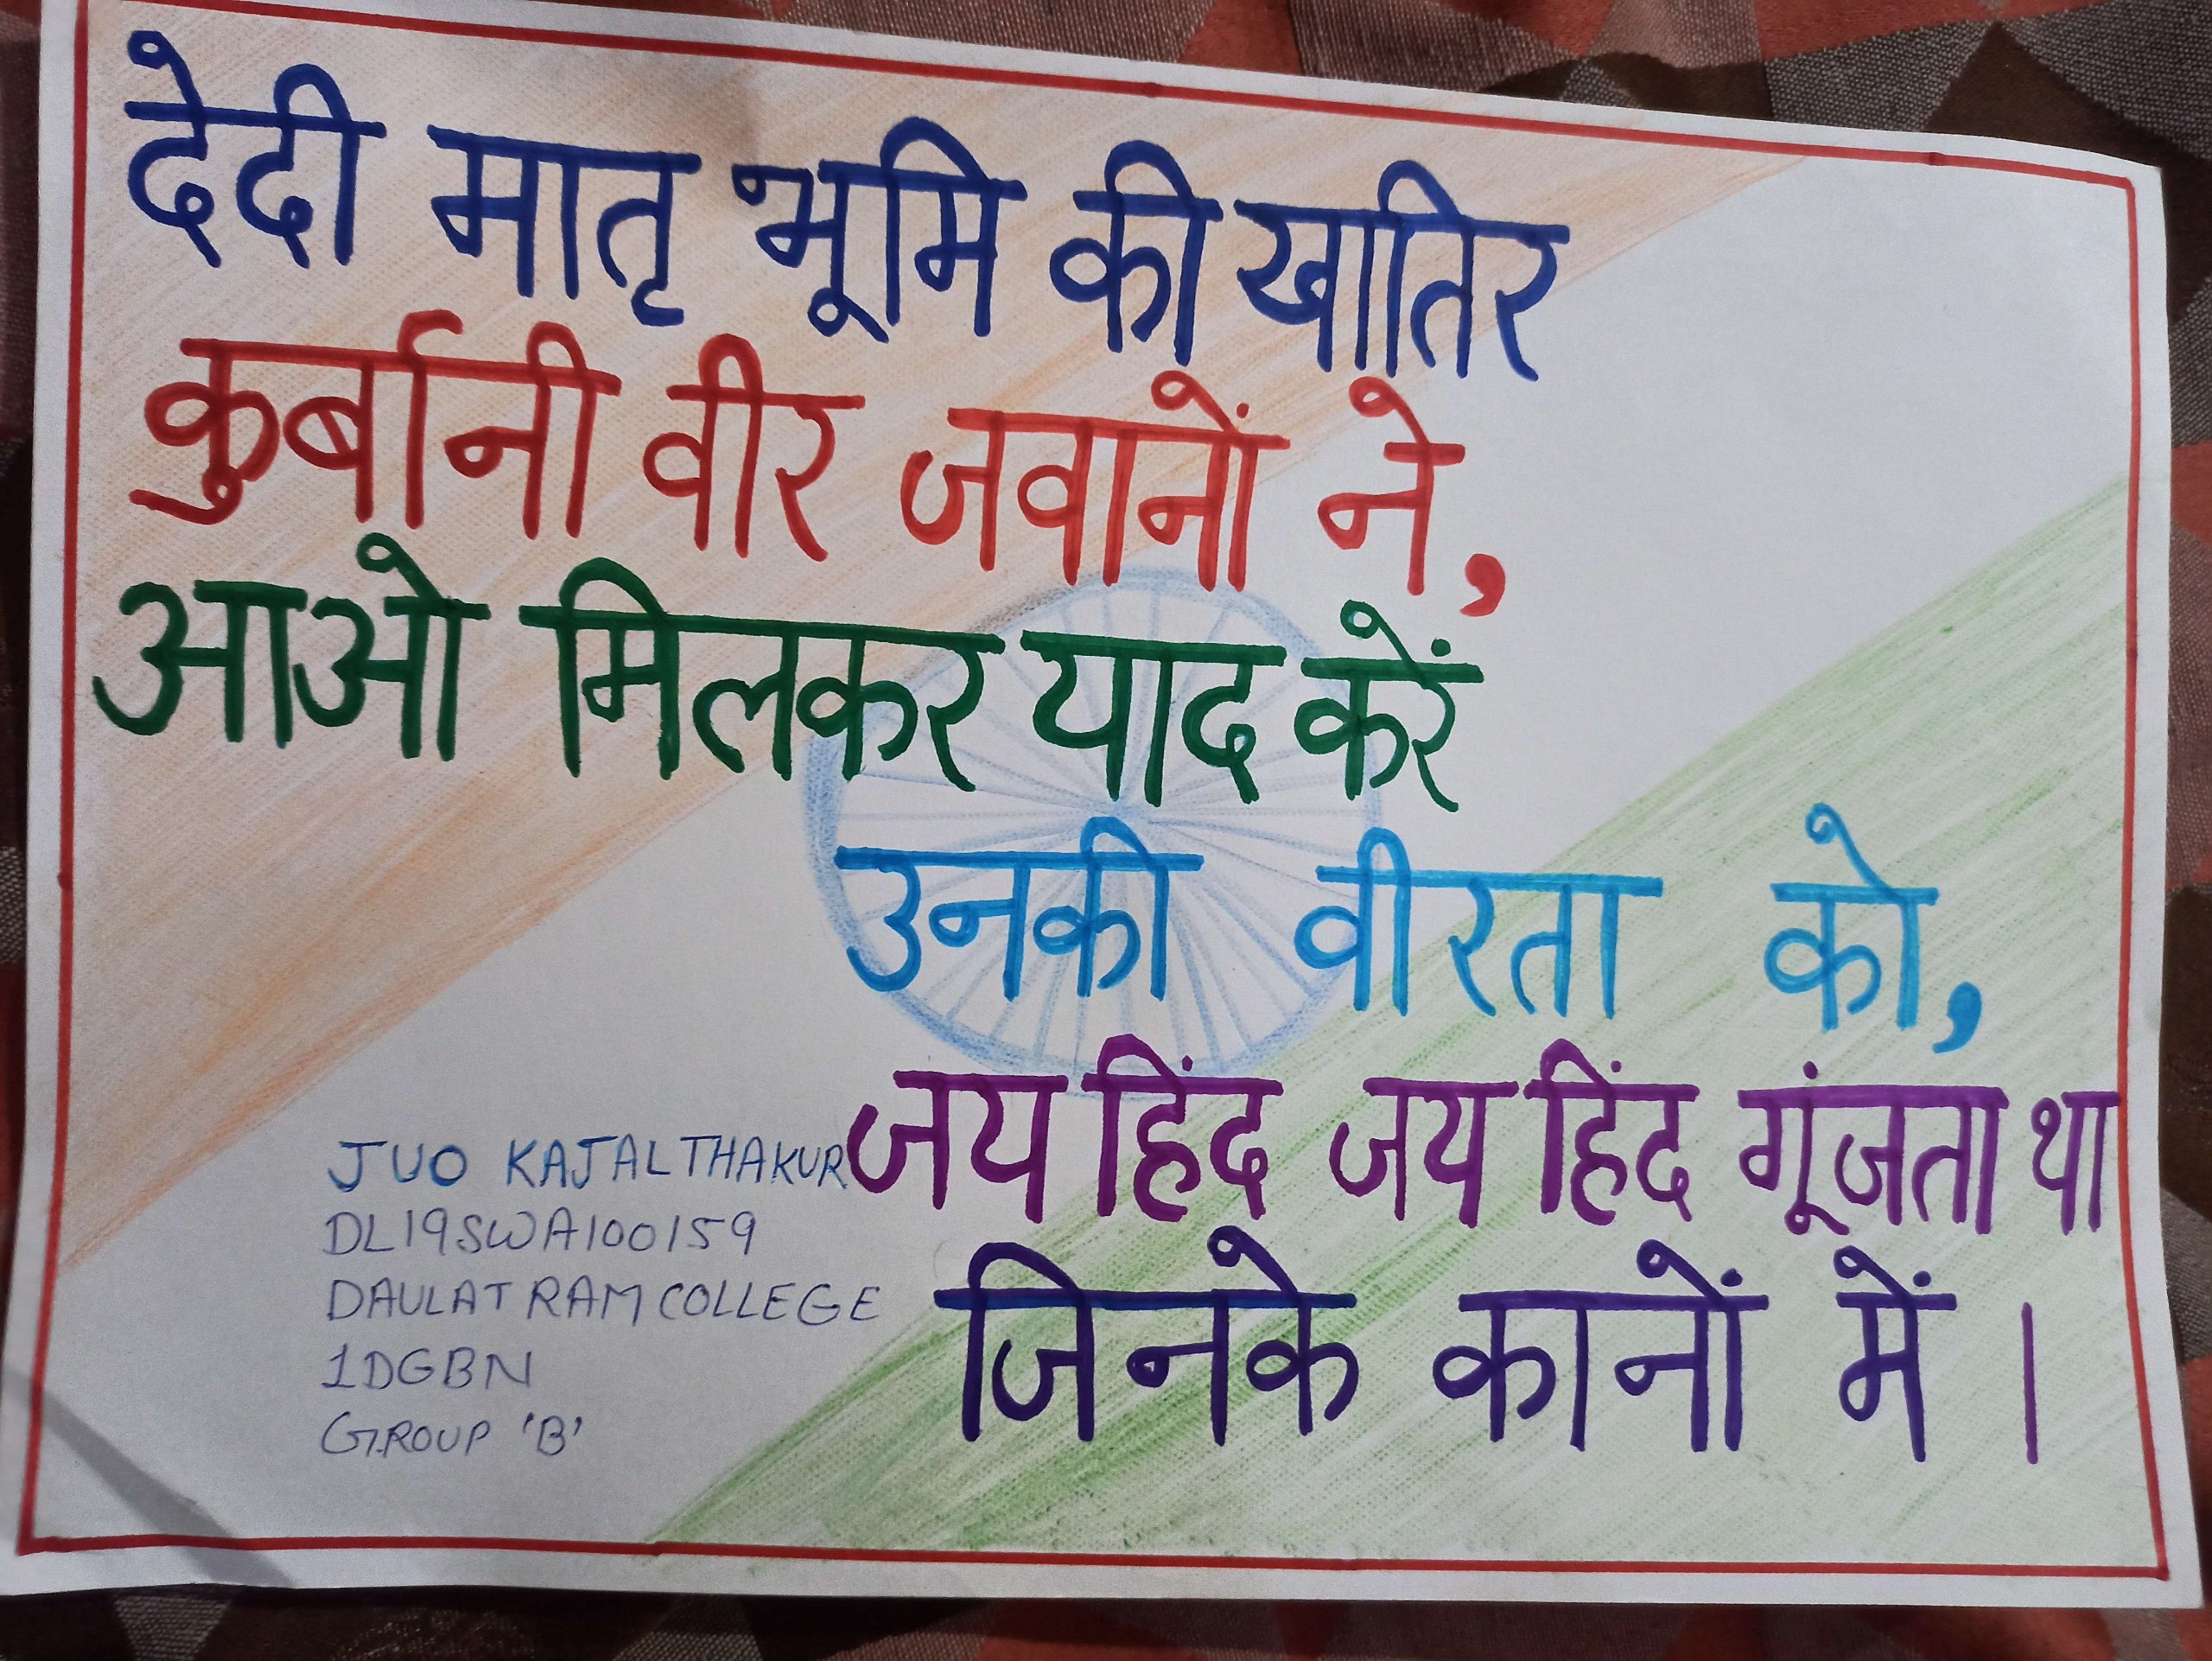 देदी मातृ भूमि की खातिर
कुर्बानी वीर जवानों ने,
आओ मिलकर याद करें
उनकी वीरता को,
जय हिंद जय हिंद गूंजता था
जिनके कानों में ।
JUO KAJAL THAKUR
DL19SWA100159
DAULAT RAM COLLEGE
1DGBN
GROUP 'B'